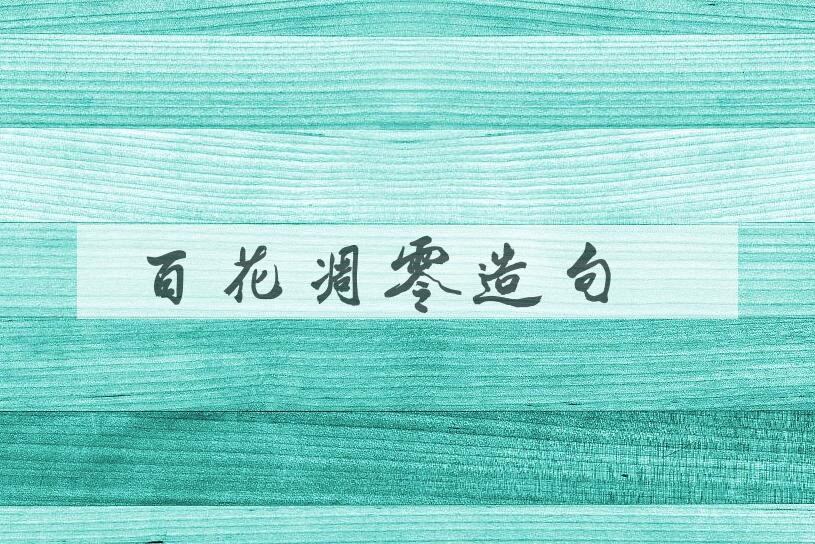 百花凋零造句